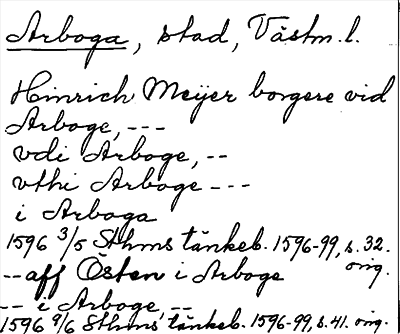 Arboga, stad, Västm. l.
Hinrich Meijer borgere vid
Arboge, ---
vdi Arboge, --
vthi Arboge ---
i Arboga
1596 3/5 Sthms tänkeb. 1596-99, s. 32.
orig.
-- aff Östen i Arboge
-- i Arboge, --
1596 9/6 Sthms tänkeb. 1596-99, s. 41. orig.